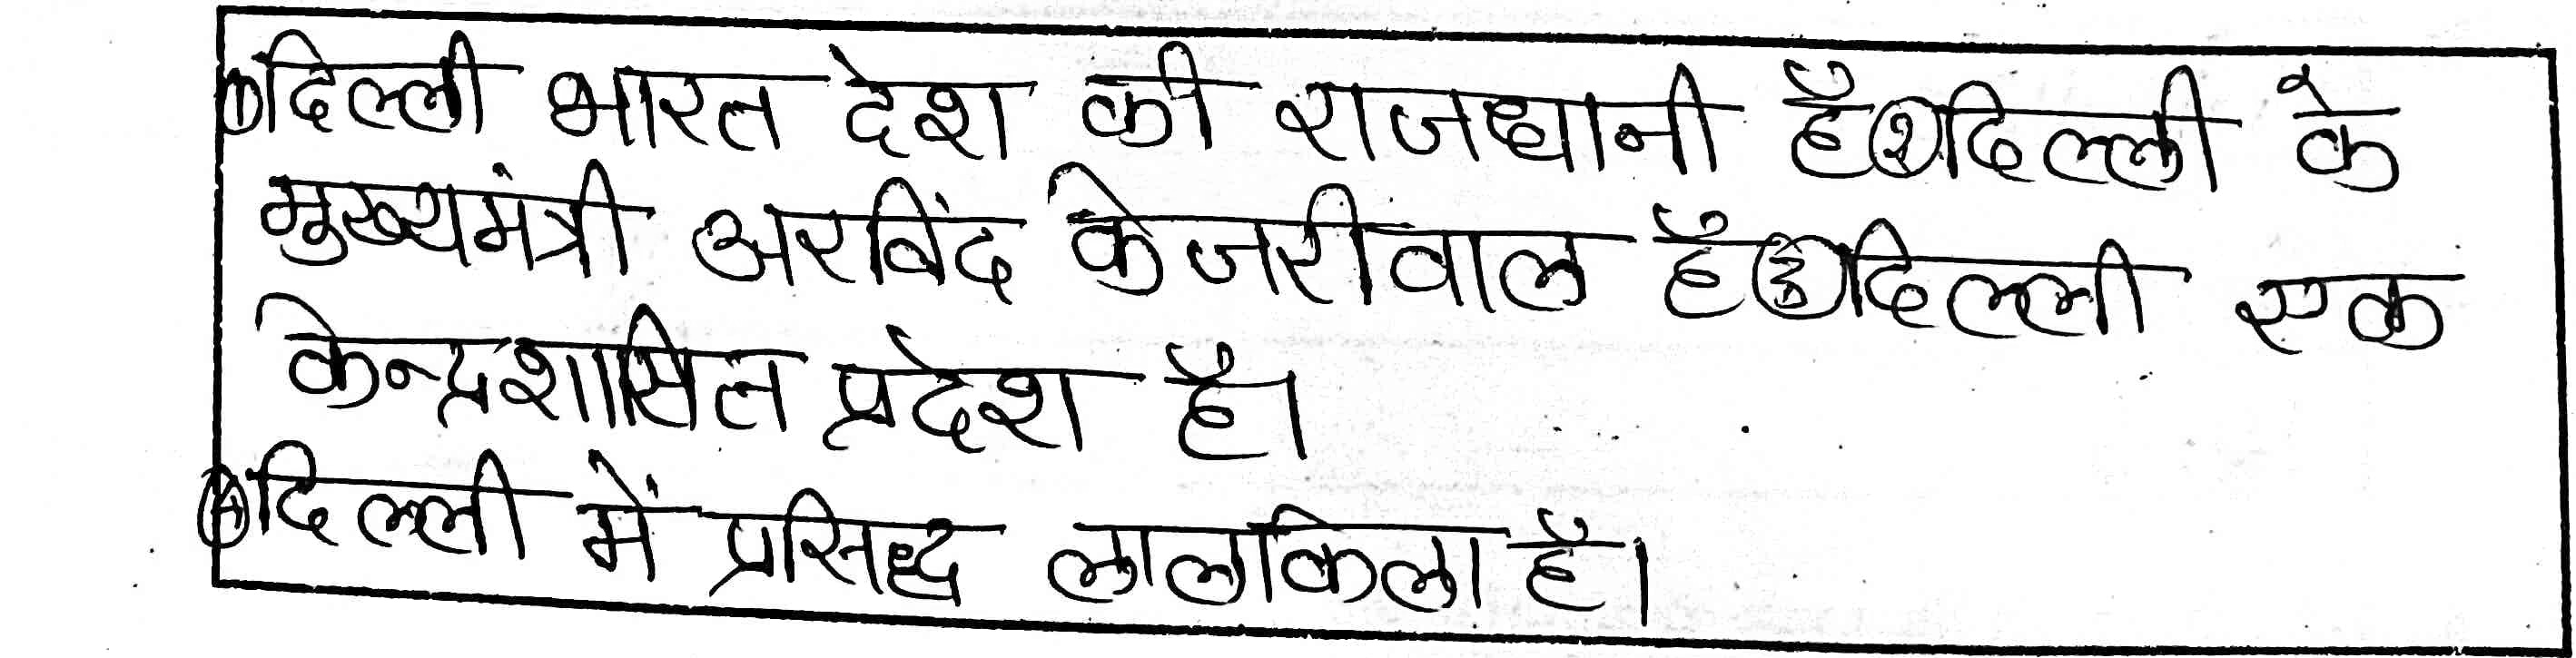 ①दिल्ली भारत देश की राजधानी है②दिल्ली के
मुख्यमंत्री अरविंद केजरीवाल है③दिल्ली एक
केन्द्रशासित प्रदेश है।
④दिल्ली में प्रसिद्ध लालकिला है।